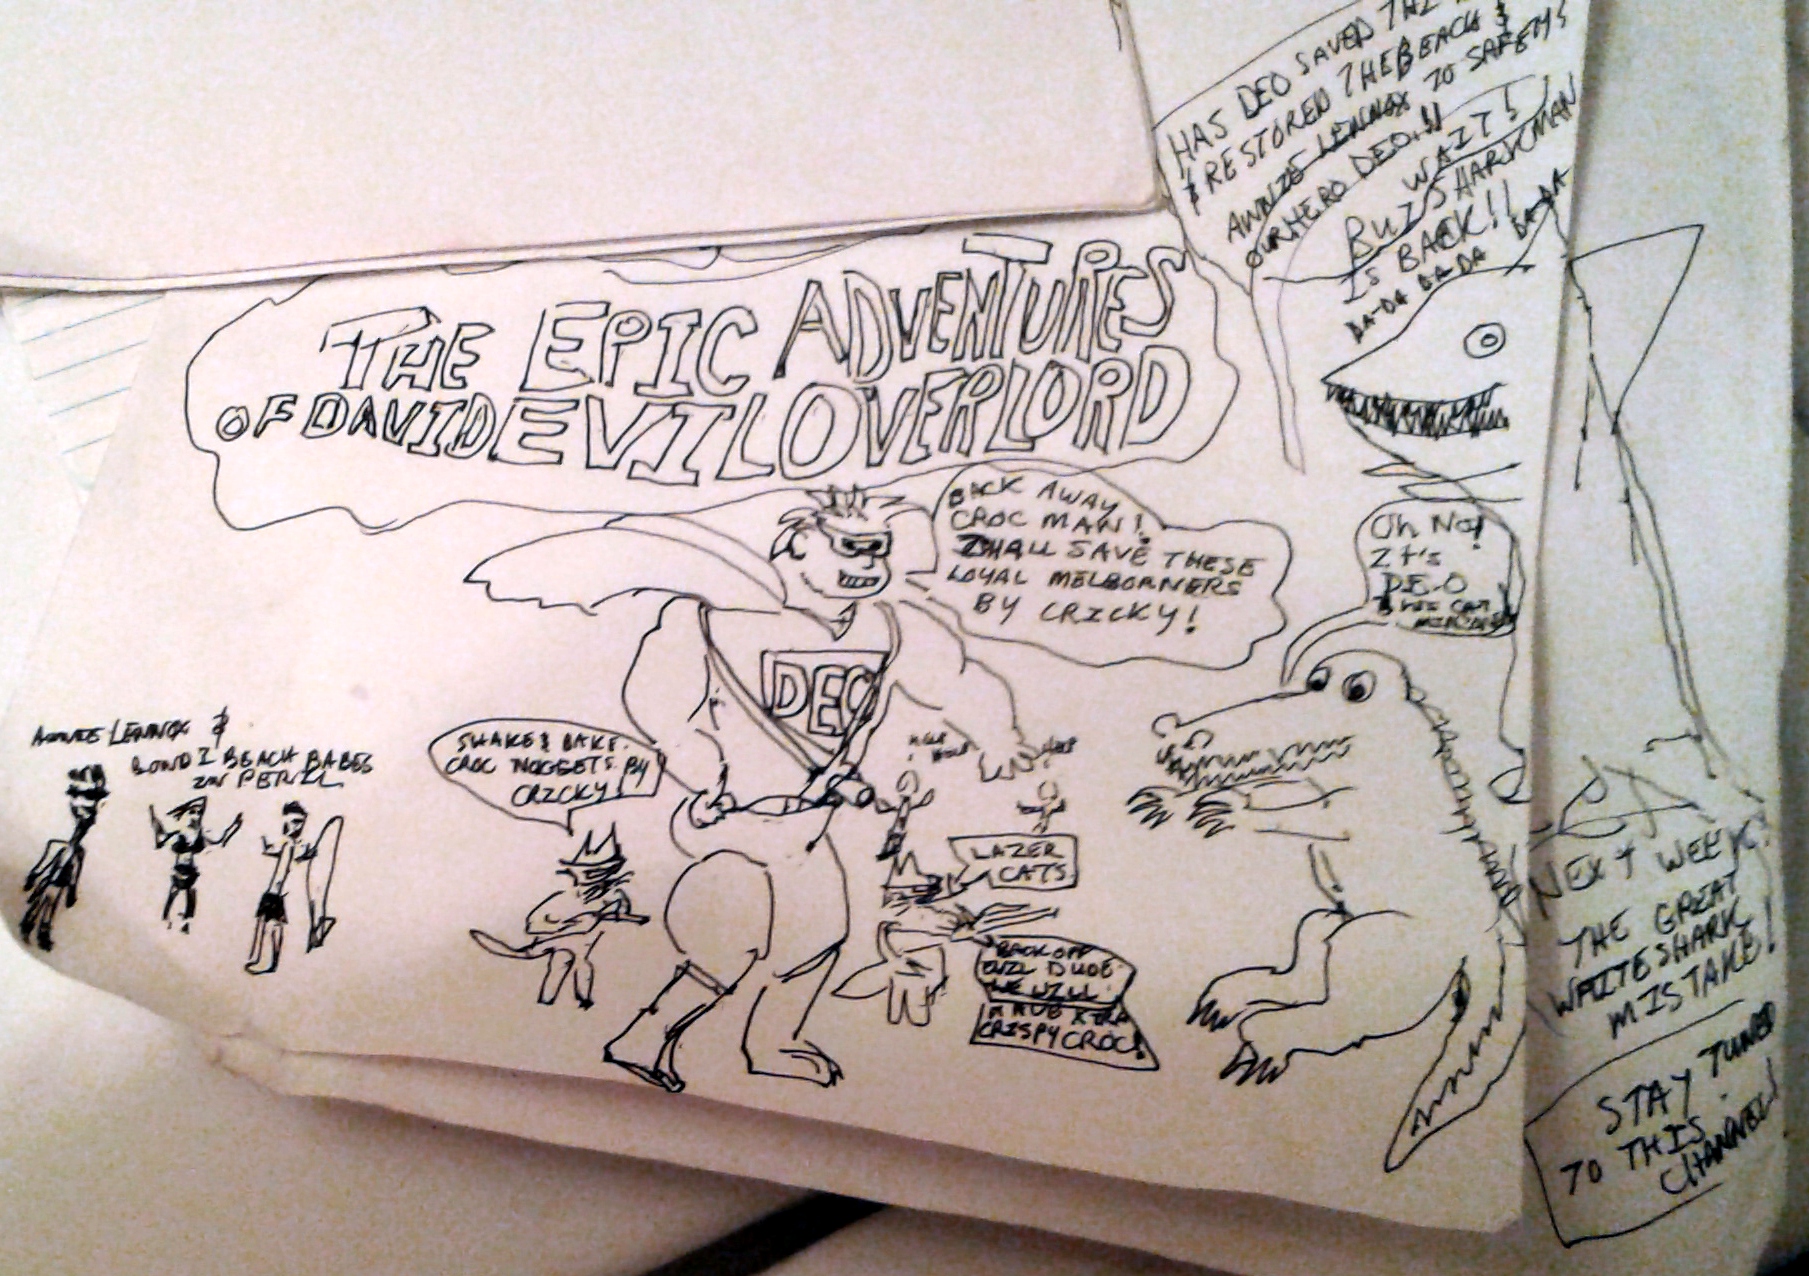 THE EPIC ADVENTURES
OF DAVID EVIL OVERLORD
BACK AWAY
CROC MAN!
I SHALL SAVE THESE
LOYAL MELBORNERS
BY CRICKY!
Oh No!
It's
D.E.O
DEO
ANNIE LENNOX &
BONDI BEACH BABES
IN PERIL
SHAKE & BAKE
CROC NUGGETS BY
CRICKY!
HELP
HELP
HELP
LAZER
CATS
BACK OFF
EVIL DUDE
WE WILL
HAVE XTRA
CRISPY CROC!
HAS DEO SAVED THE
& RESTORED THE BEACH &
ANNIE LENNOX TO SAFETY?
OUR HERO DEO!!
WAIT!
BUT SHARKMAN
IS BACK!!
DA-DA DA-DA DA-DA
NEXT WEEK!
THE GREAT
WHITE SHARK
MISTAKE!
STAY TUNED
TO THIS
CHANNEL!